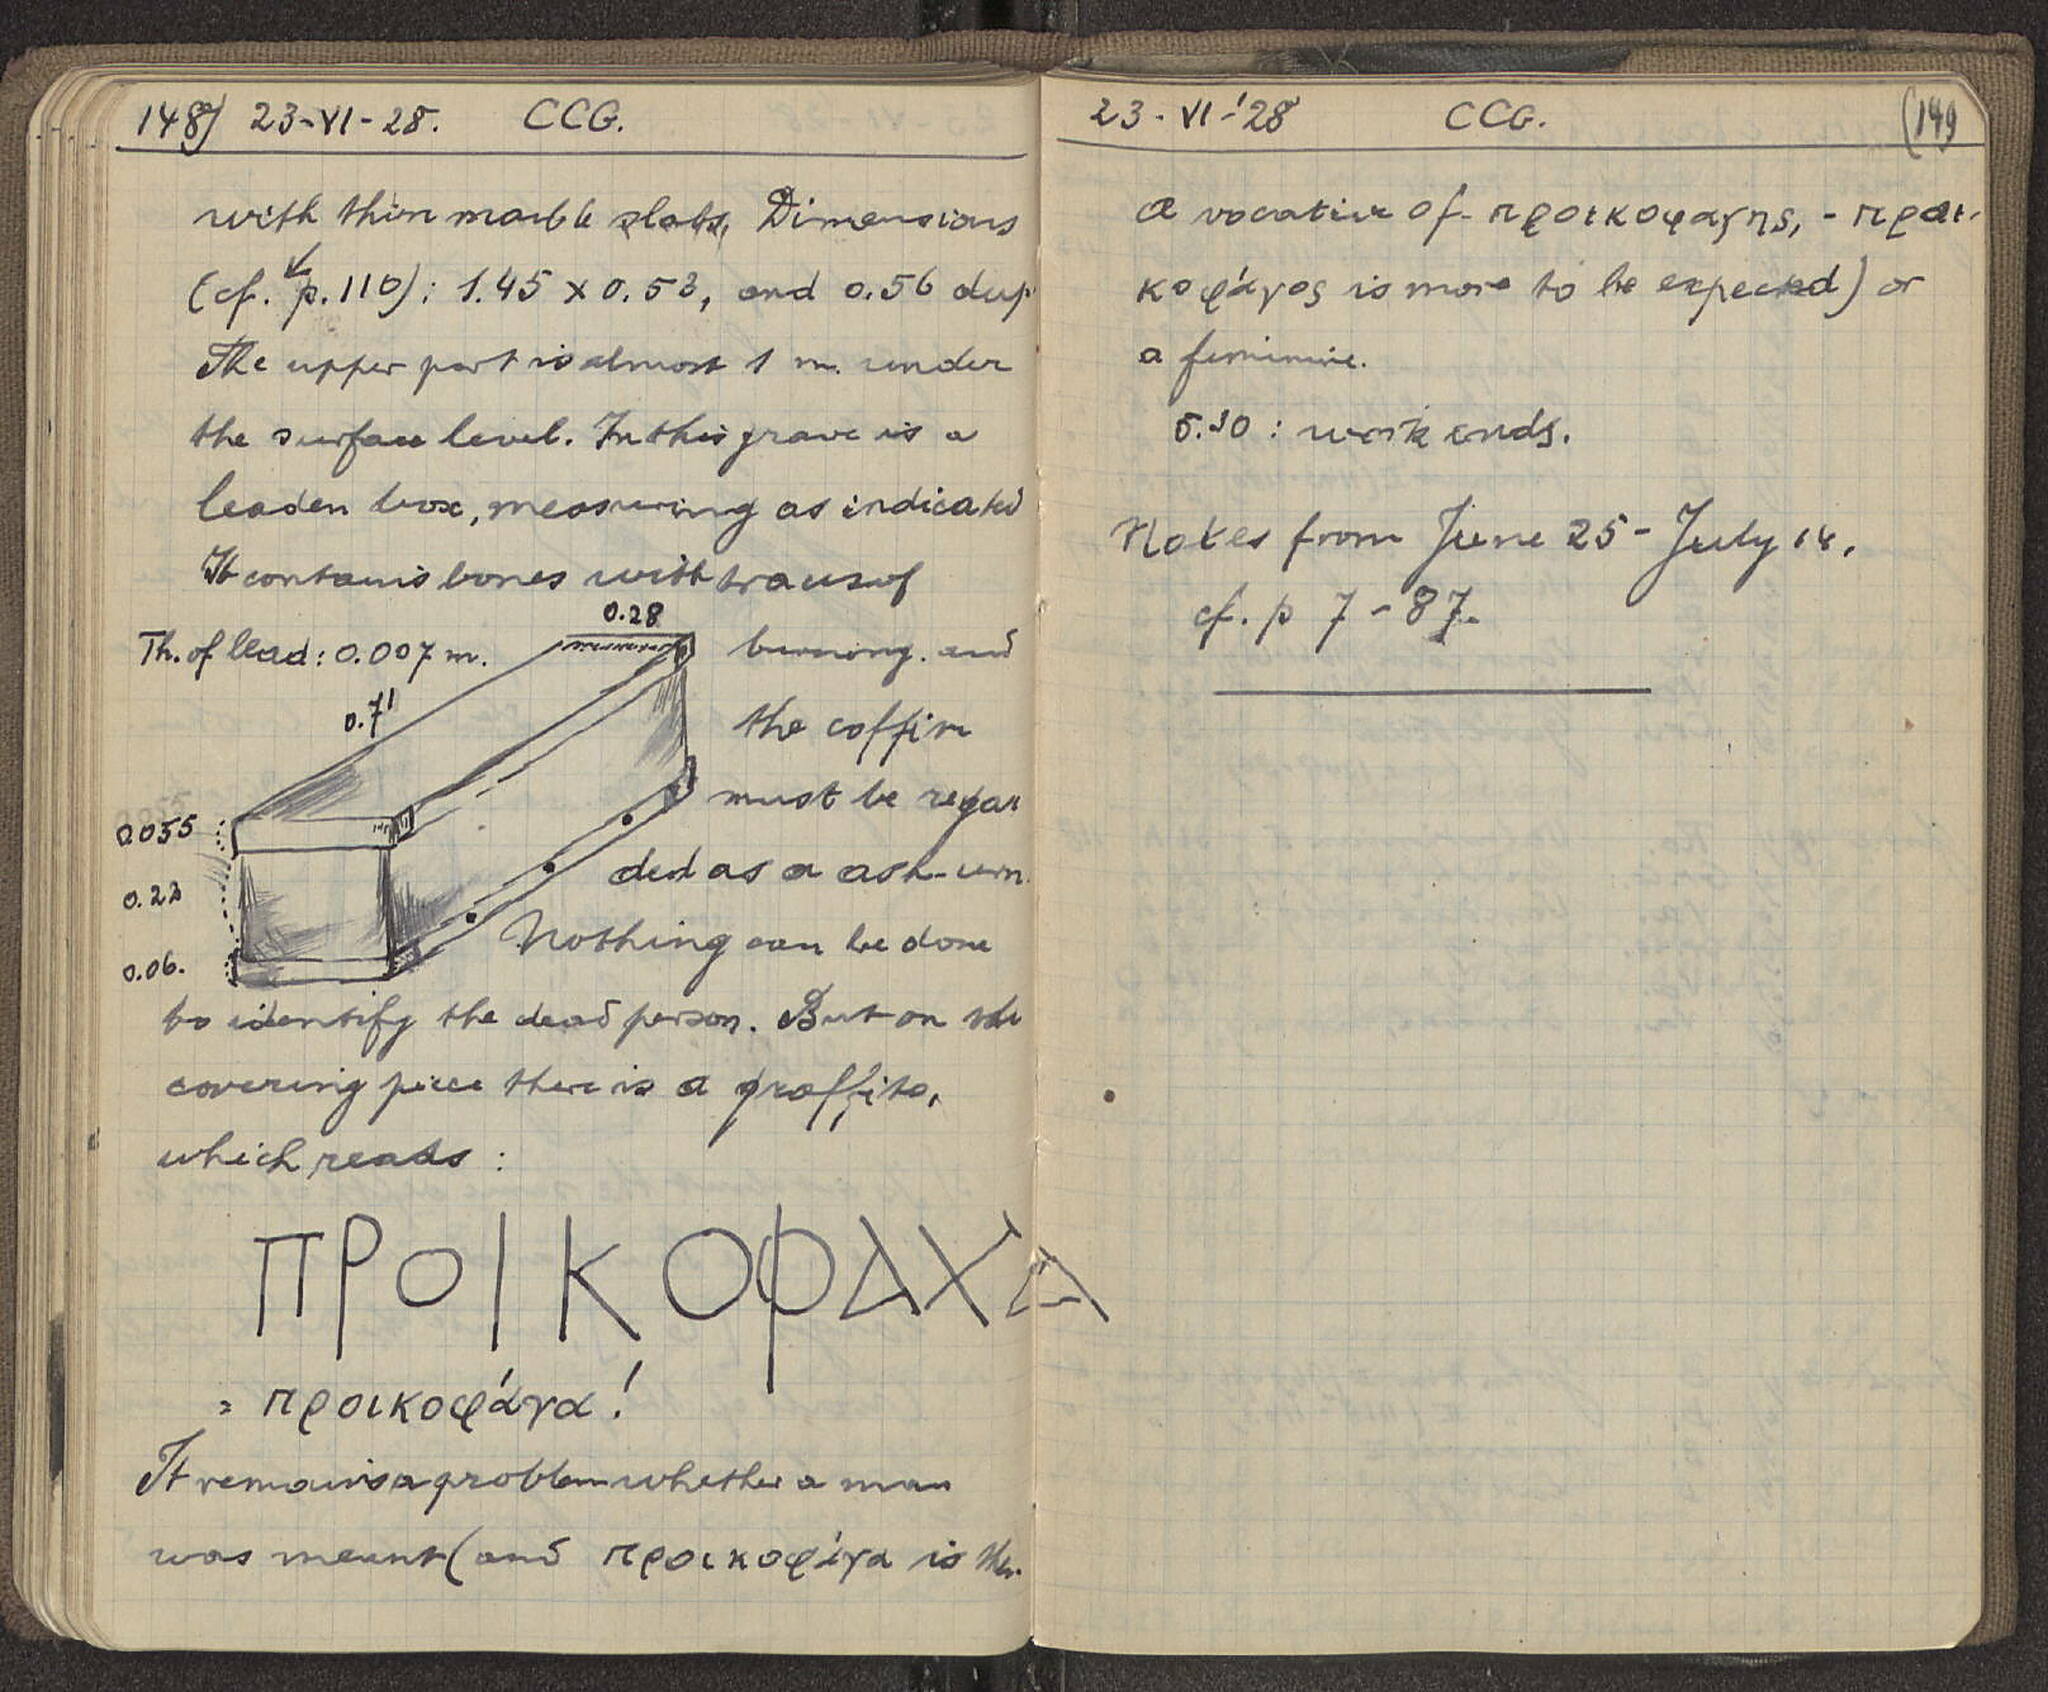 148) 23-VI-28. CCG.
with thin marble slabs, Dimensions
(cf. p. 110): 1.45 x 0.53, and 0.56 deep
The upper part is almost 1 m. under
the surface level. In this grave is a
leaden box, measuring as indicated
It contains bones with traces of
0.28
Th. of lead: 0.007 m.
burning. and
0.71
the coffin
must be regar
0.035
ded as a ash-urn.
0.23
Nothing can be done
0.06.
to identify the dead person. But on the
covering piece there is a graffito,
which reads :
ΠΡΟΙΚΟΦΑΧΑ
= προικοφάγα!
It remains a problem whether a man
was meant (and προικοφάγα is then
23-VI-'28 CCG. (149
a vocative of προικοφαγης, - προι-
κοφάγος is more to be expected) or
a feminine.
5.30 : work ends.
Notes from June 25 - July 14,
cf. p 7 - 87.